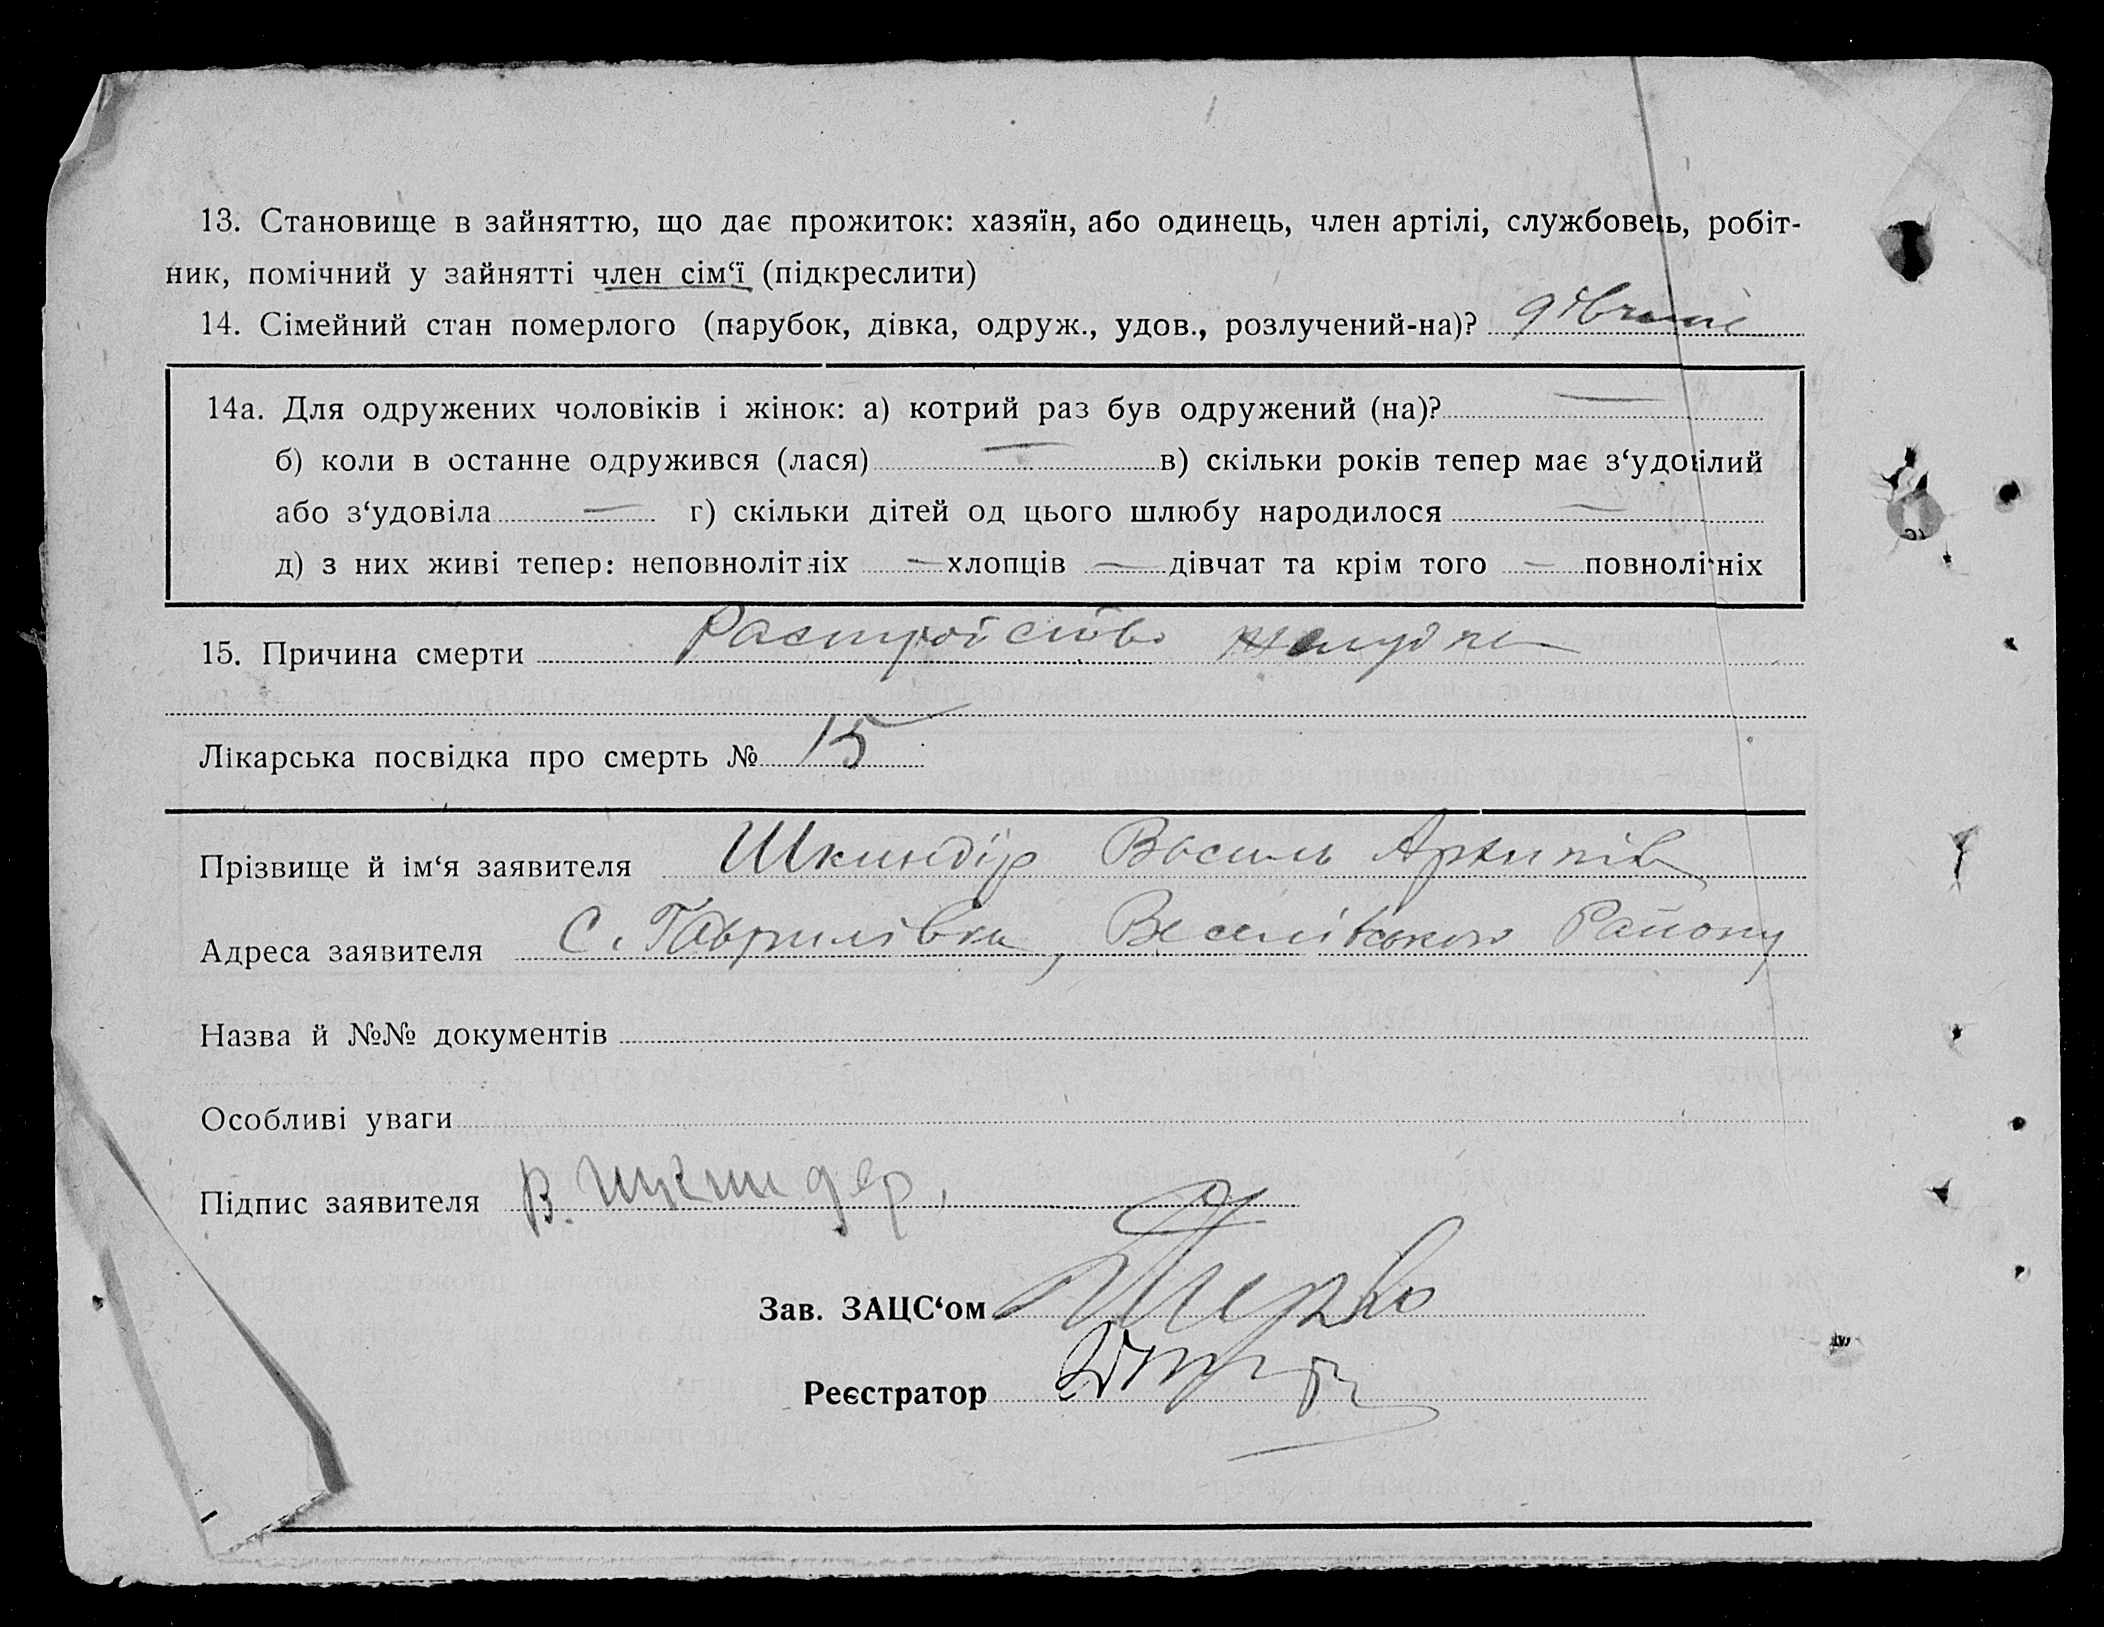 13. Становище в зайняттю, що дає прожиток: хазяїн, або одинець, член артілі, службовець, робіт-
ник, помічний у зайнятті член сім‘ї (підкреслити)
14. Сімейний стан померлого (парубок, дівка, одруж., удов., розлучений-на)?
14а. Для одружених чоловіків і жінок: а) котрий раз був одружений (на)? —
б) коли в останне одружився (лася) — в) скільки років тепер має з‘удовілий
або з‘удовіла — г) скільки дітей од цього шлюбу народилося —
д) з них живі тепер: неповнолітніх — хлопців — дівчат та крім того — повнолітніх
15. Причина смерти Растройство желудка
Лікарська посвідка про смерть № 15
Прізвище й ім‘я заявителя Шкиндір Василь Архипів
Адреса заявителя С. Гаврилівка, Веселівського Району
Назва й №№ документів
Особливі уваги
Підпис заявителя В. Шкиндер,
Зав. ЗАЦС‘ом
Реєстратор